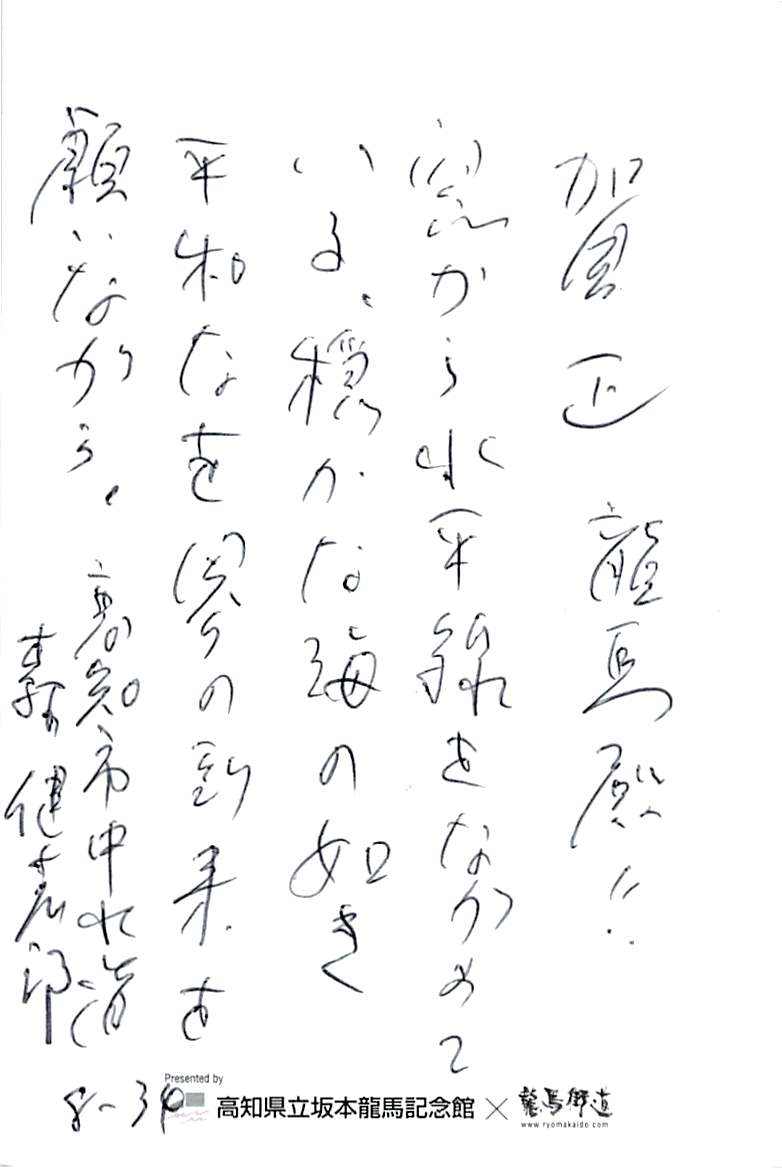 加賀正 龍馬殿!!
窓から水平線をながめて
いる、穏かな海の如き
平和な世界の到来を
願いながら、
高知市中水道
森 健志郎
8-34
Presented by
高知県立坂本龍馬記念館×龍馬街道
www.ryomakaido.com